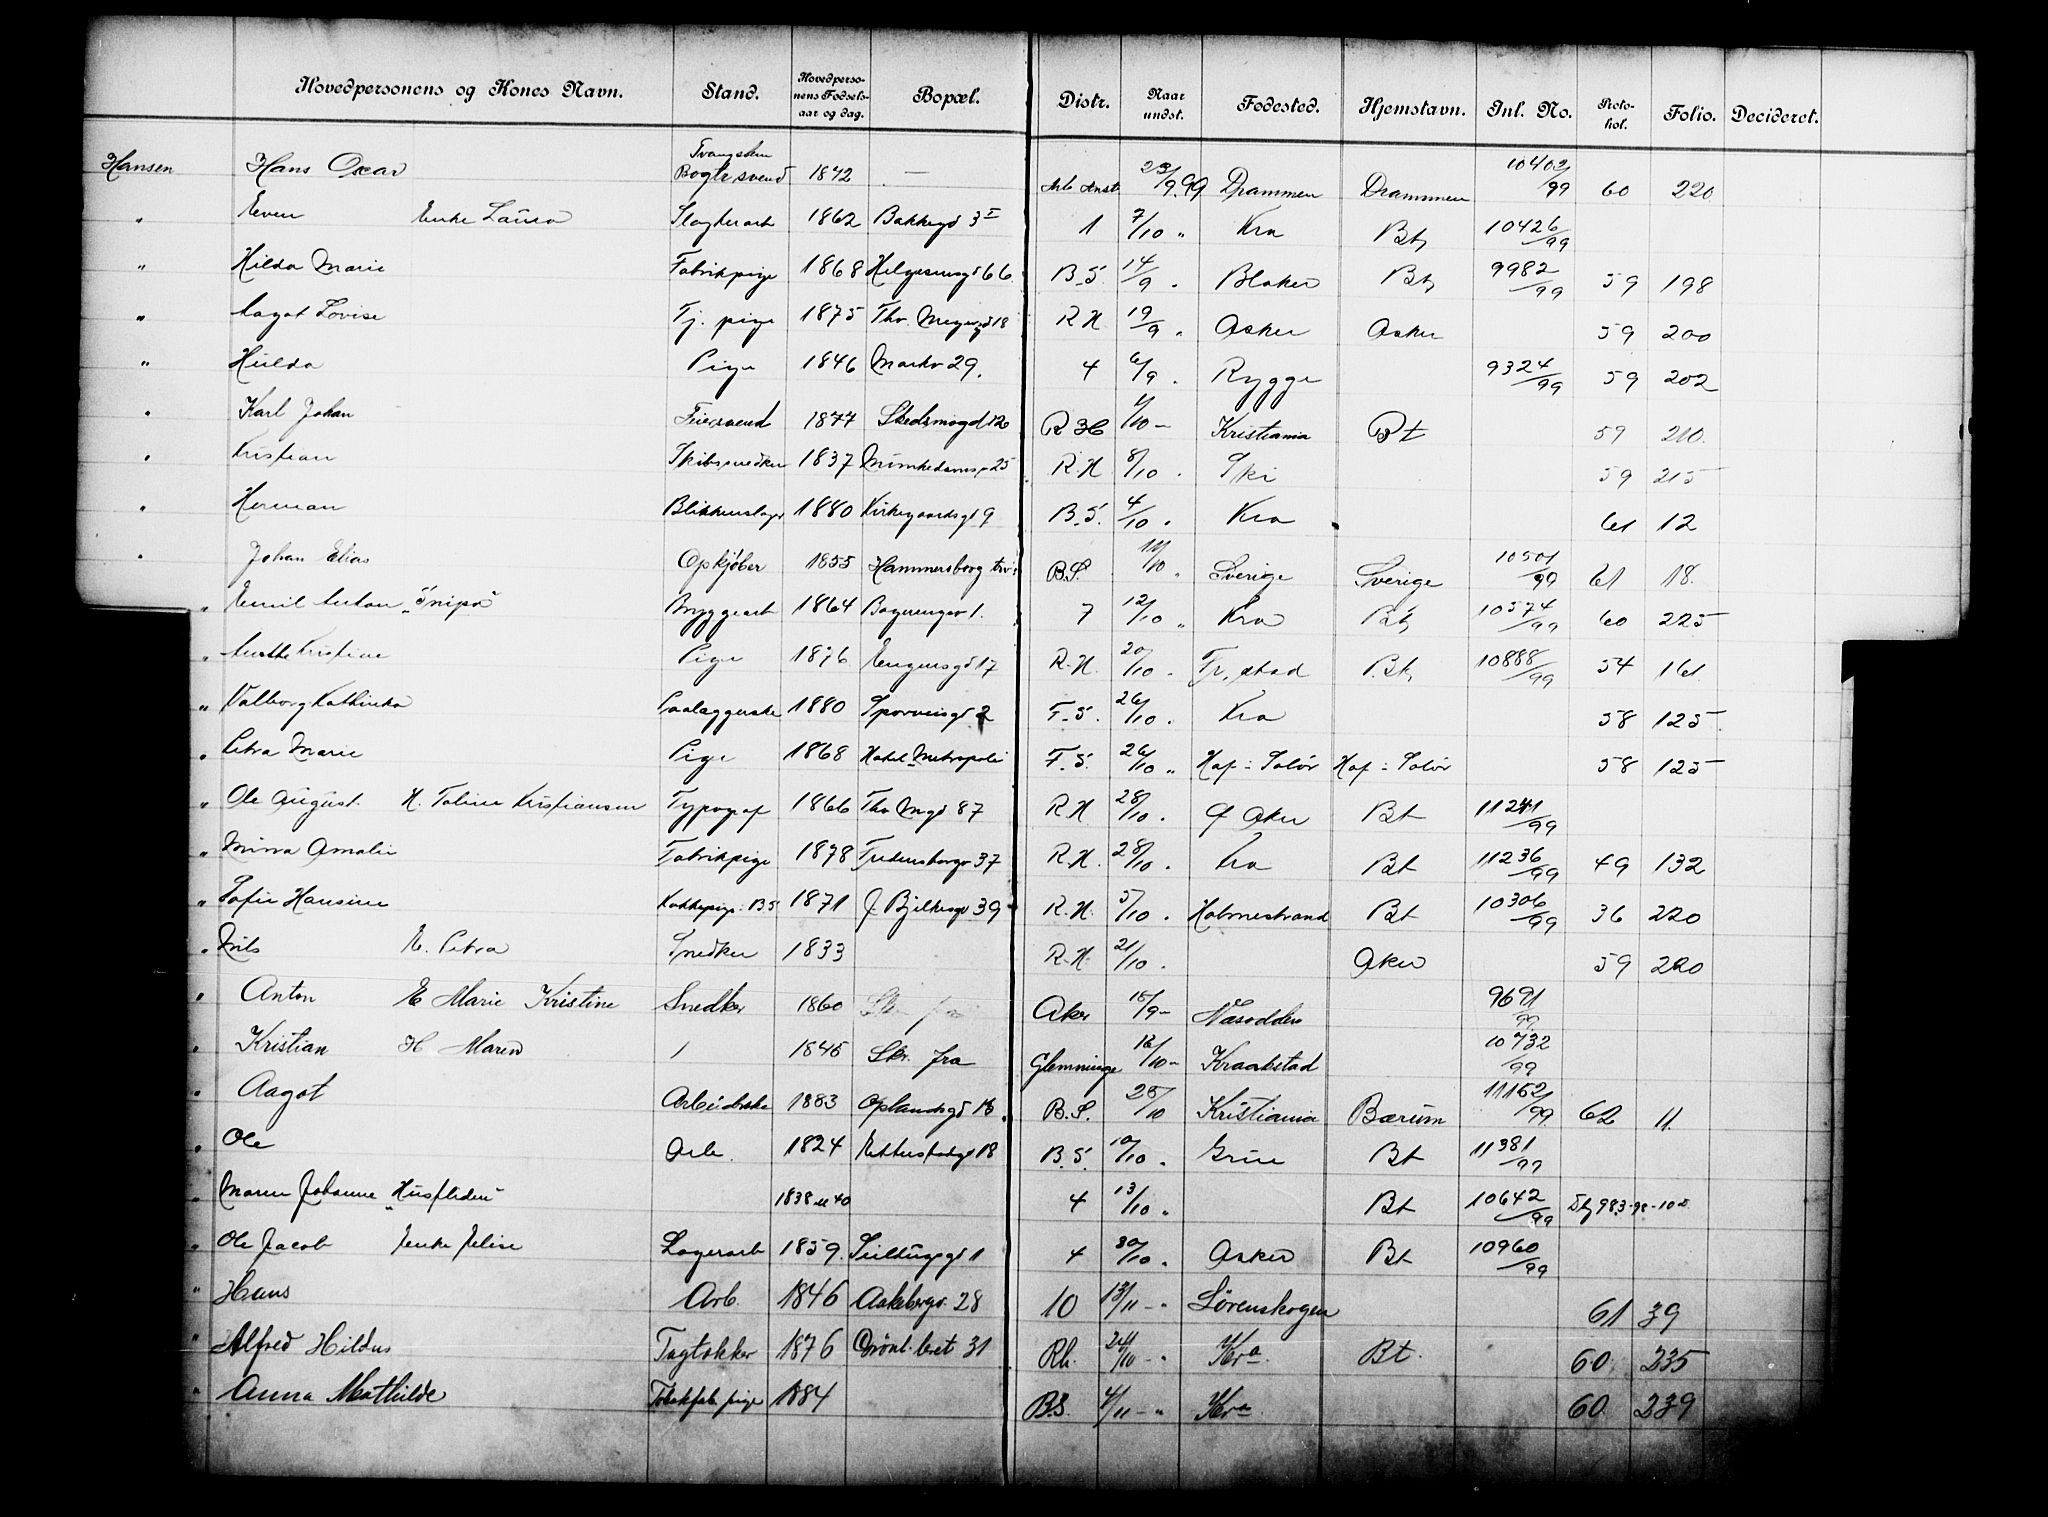 Hovedpersonens og Kones Navn. Stand. Hovedperso-nens Fødsels-aar og dag. Bopæl. Distr. Naar undst. Fødested. Hjemstavn. Inl. No. Proto-kol. Folio. Decideret.
Hansen Hans Oscar Bogtr. svend 1842 — Arb Anst 23/9 99 Drammen Drammen 10402/99 60 220
" Even Enke Laura Slagterarb 1862 Bakkegd 3 I 1 7/10 " Kra Bt, 10426/99
" Hilda Marie Fabrikpige 1868 Helgesensgd 66 B.S. 14/9 " Blaker Bt, 9982/99 59 198
" Aagot Lovise Tj. pige 1875 Thv. Meyersgd 18 R.H. 19/9 " Asker Asker 59 200
" Hulda Pige 1846 Markv 29. 4 6/9 " Rygge 9324/99 59 202
" Karl Johan Feiersvend 1877 Skedsmogd 12 R H /10 — Kristiania Bt 59 210.
" Kristian Skibssnedker 1837 Munkedamsv 25 R.H. 8/10 " Ski 59 215
" Herman Blikkenslager 1880 Kirkegaardsgd 9 B.S. 4/10 " Kra 61 12
" Johan Elias Opkjøber 1855 Hammersborg B.S. 11/10 " Sverige Sverige 10501/99 61 18.
" Emil Anton "Snipa" Bryggearb 1864 1. 7 12/10 " Kra Bt, 10574/99 60 225
" Anette Kristine Pige 1876 Eugensgd 17 R.H. 20/10 " Fr. stad Bt, 10888/99 54 161.
" Valborg Kathinka Paalæggerske 1880 Sporveisgd 2 F.S. 26/10 " Kra 58 125.
" Petra Marie Pige 1868 Hotel Metropole F.S. 26/10 " Hof i Solør Hof i Solør 58 125
" Ole August. H. Toline Kristiansen Typograf 1866 Thv Mgd 87 R.H. 28/10 " Ø Aker Bt 11241/99
" Minna Amalie Fabrikpige 1878 Fredensborgv 37 R.H. 28/10 " Kra Bt 11236/99 49 132
" Sofie Hansine Kokkepige BS 1871 J. Bjelkesgt 39 R.H. 5/10 " Holmestrand Bt 10306/99 36 220
" Nils E. Petra Snedker 1833 R.H. 21/10 " Aker 59 220
" Anton E Marie Kristine Snedker 1860 Aker 15/9 — Næsodden 9691/99
" Kristian H Maren 1 1845 Skr. fra Glemminge 12/10 — Kraakstad 10732/99
" Aagot Arbeiderske 1883 Oplandsgd 18. B.S. 25/10 Kristiania Bærum 11152/99 62 11.
" Ole Arb. 1824 18 B.S. 10/10 " Grue Bt 11381/99
" Maren Johanne "Husfliden" 1838 40 4 13/10 " Bt 10642/99 983-98-10
" Ole Jacob Enke Jelise Lagerarb 1859. Siilhusgd 1 4 30/10 " Asker Bt 10960/99
" Hans Arb. 1846 Aakebergv. 28 10 13/11 — " Lørenskogen 61 39
" Alfred Hildus Tagtækker 1876 Grönl. leret 31 Rh. 24/10 — " Kra. Bt. 60. 235
" Anna Mathilde Tobakfab. pige 1884 B.S. 4/11 — " Kra. 60. 239